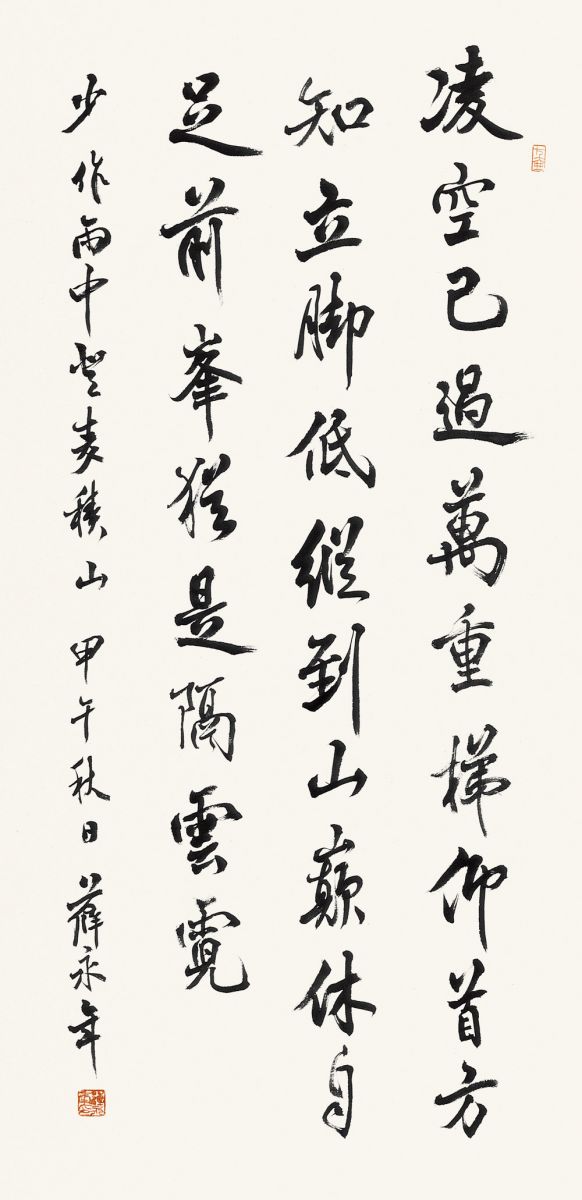 凌空已過萬重梯仰首方
知立脚低縱到山巔休自
足前峯猶是隔雲霓
少作雨中登麦積山 甲午秋日 薛永年